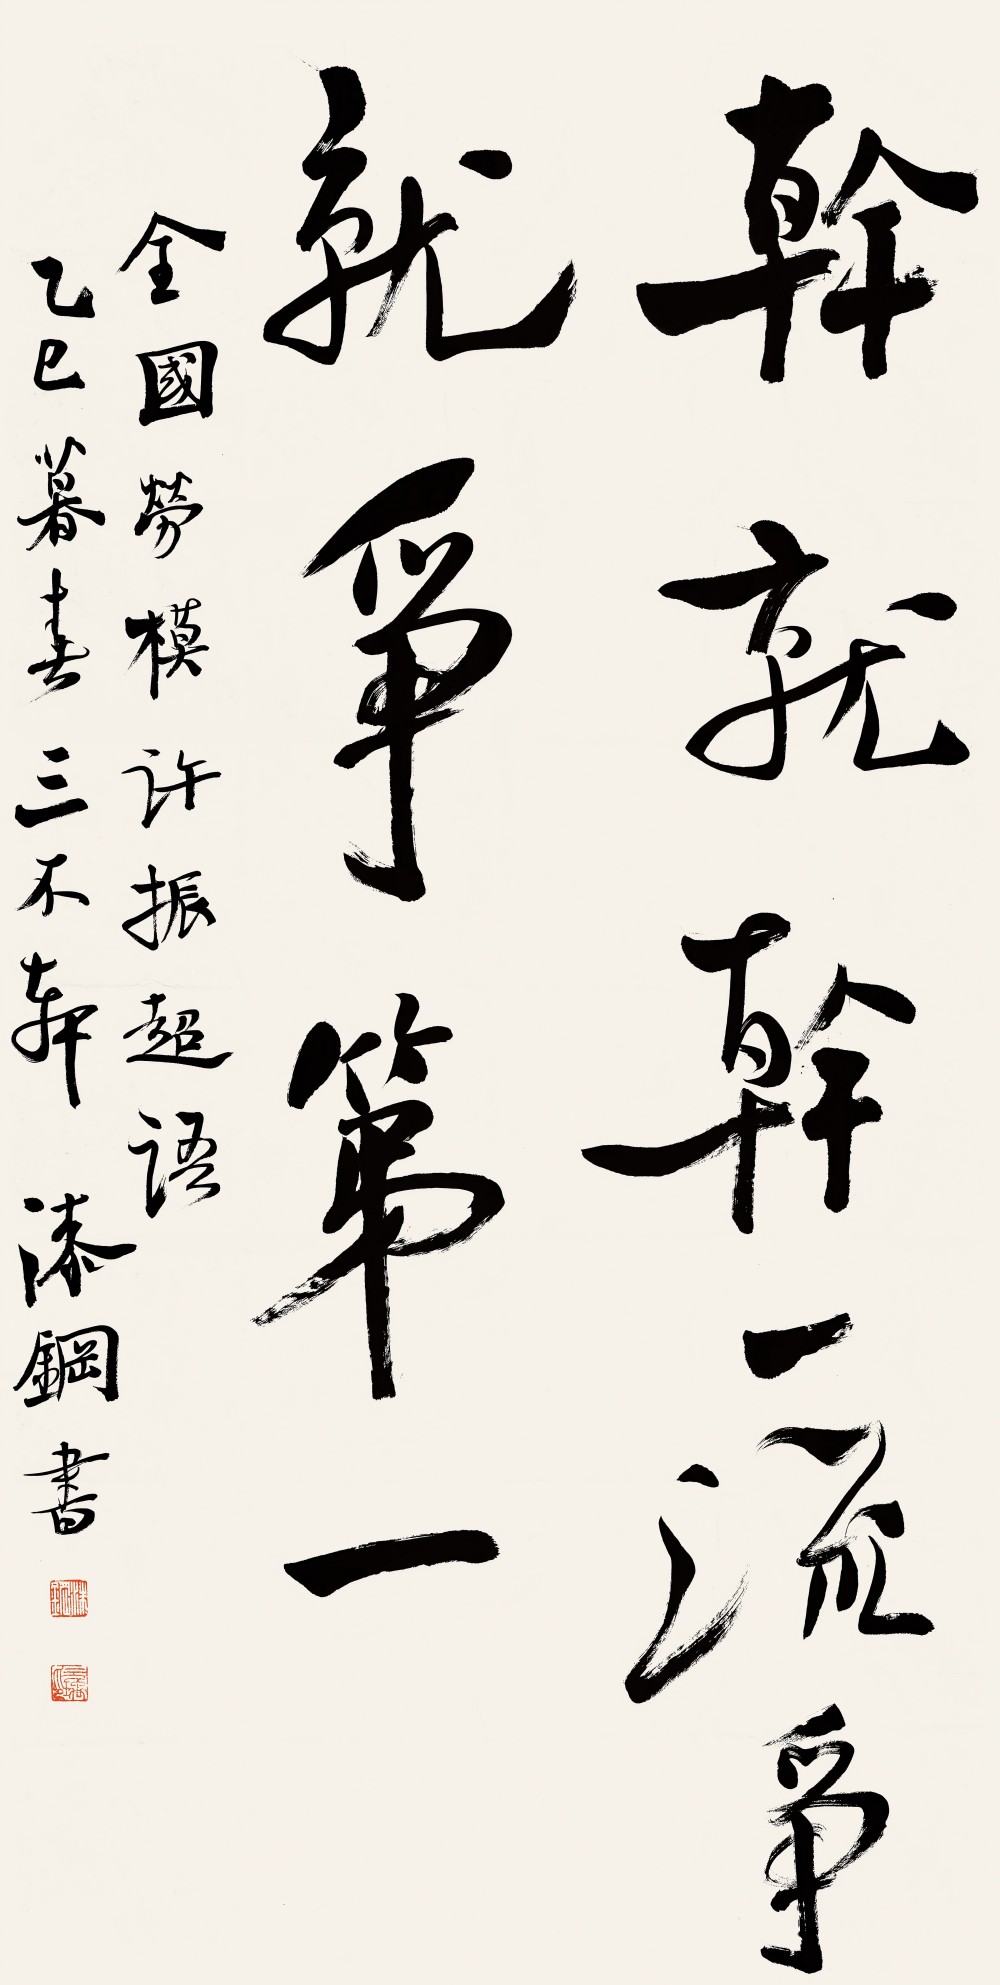 幹就幹一流爭
就爭第一
全國勞模许振超语
乙巳暮春三不軒漆鋼書